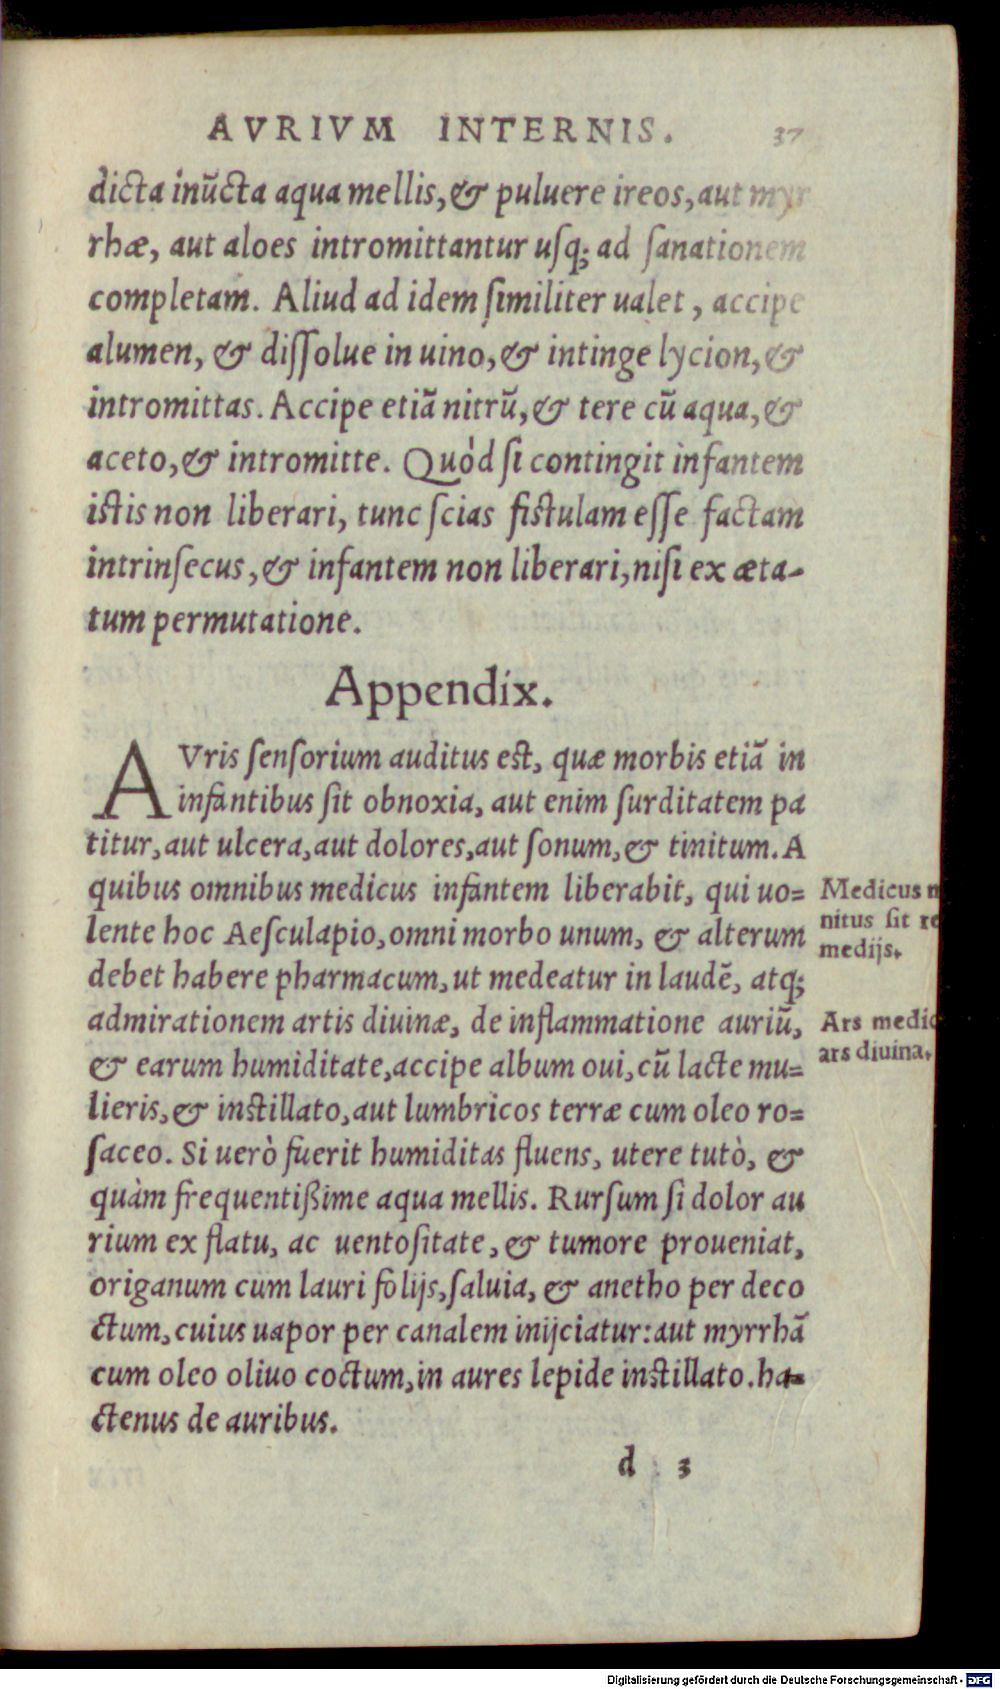 AVRIVM INTERNIS. 37
dicta inũcta aqua mellis, & puluere ireos, aut myr
rhæ, aut aloes intromittantur uſq; ad ſanationem
completam. Aliud ad idem ſimiliter ualet, accipe
alumen, & diſſolue in uino, & intinge lycion, &
intromittas. Accipe etiã nitrũ, & tere cũ aqua, &
aceto, & intromitte. Quòd ſi contingit infantem
istis non liberari, tunc ſcias fistulam eſſe factam
intrinſecus, & infantem non liberari, niſi ex æta-
tum permutatione.
Appendix.
AVris ſenſorium auditus est, quæ morbis etiã in
infantibus ſit obnoxia, aut enim ſurditatem pa
titur, aut ulcera, aut dolores, aut ſonum, & tinitum. A
quibus omnibus medicus infantem liberabit, qui uo=
lente hoc Aeſculapio, omni morbo unum, & alterum
debet habere pharmacum, ut medeatur in laudẽ, atq;
admirationem artis diuinæ, de inflammatione auriũ,
& earum humiditate, accipe album oui, cũ lacte mu=
lieris, & instillato, aut lumbricos terræ cum oleo ro=
ſaceo. Si uerò fuerit humiditas fluens, utere tutò, &
quàm frequentißime aqua mellis. Rurſum ſi dolor au
rium ex flatu, ac uentoſitate, & tumore proueniat,
origanum cum lauri folijs, ſaluia, & anetho per deco
ctum, cuius uapor per canalem inijciatur: aut myrrhã
cum oleo oliuo coctum, in aures lepide instillato. ha=
ctenus de auribus.
d 3
Medicus
nitus ſit
medijs.
Ars medic
ars diuina.
Digitalisierung gefördert durch die Deutsche Forschungsgemeinschaft - DFG